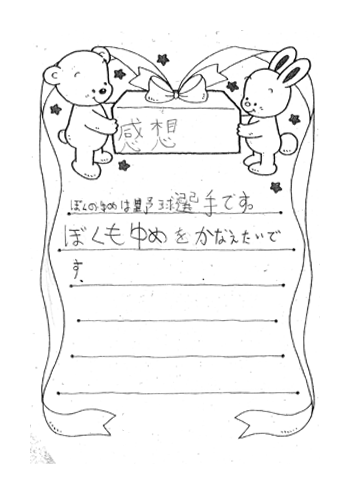 感想
ぼくのゆめは野球選手です。
ぼくもゆめをかなえたいで
す。